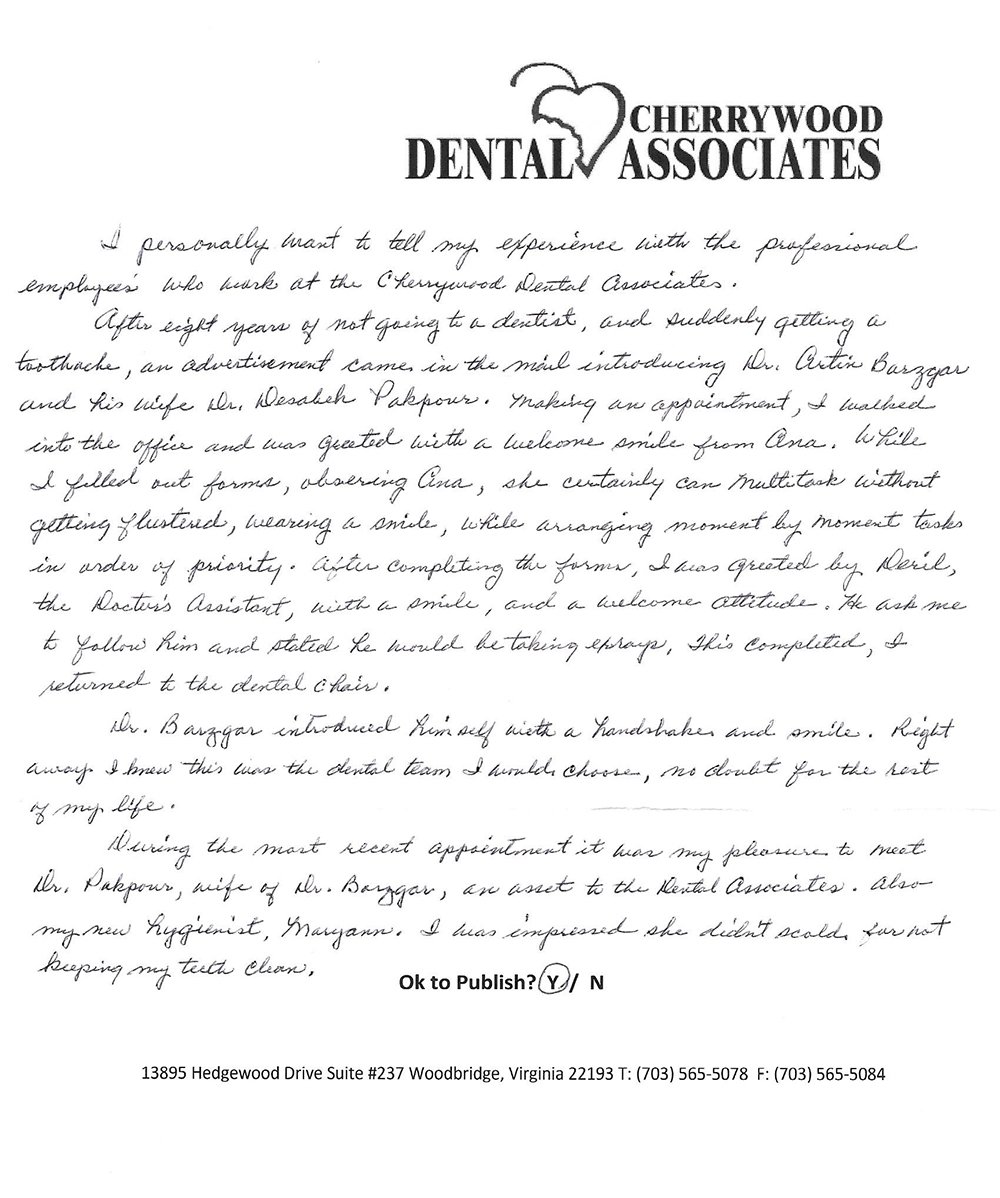 CHERRYWOOD
DENTAL ASSOCIATES
I personally want to tell my experience with the professional
employees' who work at the Cherrywood Dental Associates.
After eight years of not going to a dentist, and suddenly getting a
toothache, an advertisement came in the mail introducing Dr. Artin Barzgar
and his wife Dr. Desabeh Pakpour. Making an appointment, I walked
into the office and was greeted with a welcome smile from Ana. While
I filled out forms, obsering Ana, she certainly can multitask without
getting flustered, wearing a smile, while arranging moment by moment tasks
in order of priority. After completing the forms, I was greeted by Deril,
the Doctor's Assistant, with a smile, and a welcome attitude. He ask me
to follow him and stated he would be taking exrays, This completed, I
returned to the dental chair.
Dr. Barzgar introduced himself with a handshake and smile. Right
away I knew this was the dental team I would choose, no doubt for the rest
of my life.
During the most recent appointment it was my pleasure to meet
Dr. Pakpour, wife of Dr. Barzgar, an asset to the Dental Associates. Also
my new hygienist, Maryann. I was impressed she didn't scold for not
keeping my teeth clean.
Ok to Publish? Y / N
13895 Hedgewood Drive Suite #237 Woodbridge, Virginia 22193 T: (703) 565-5078 F: (703) 565-5084